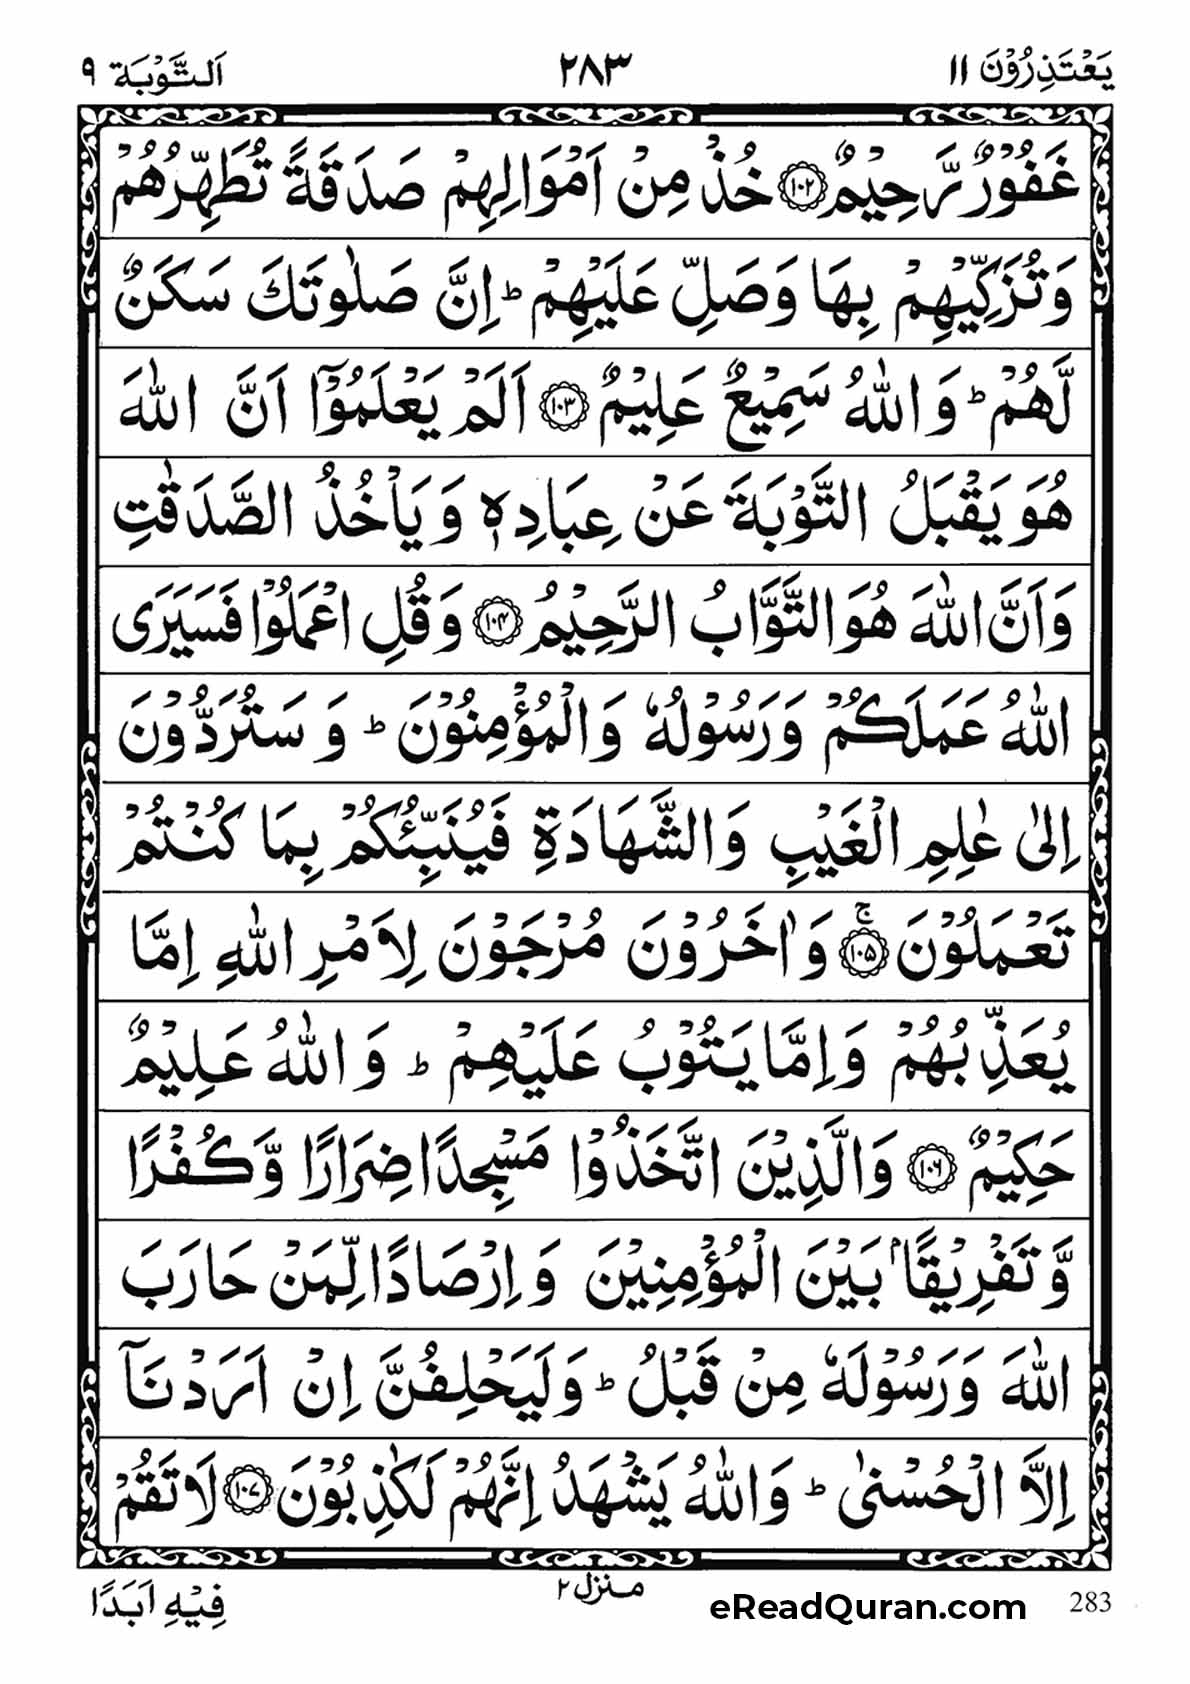 يَعْتَذِرُوْنَ ۱۱ ۲۸۳ اَلتَّوْبَة ۹
غَفُوْرٌ رَّحِيْمٌ ﴿۱۰۲﴾ خُذْ مِنْ اَمْوَالِهِمْ صَدَقَةً تُطَهِّرُهُمْ
وَتُزَكِّيْهِمْ بِهَا وَصَلِّ عَلَيْهِمْ ؕ اِنَّ صَلٰوتَكَ سَكَنٌ
لَّهُمْ ؕ وَاللّٰهُ سَمِيْعٌ عَلِيْمٌ ﴿۱۰۳﴾ اَلَمْ يَعْلَمُوْۤا اَنَّ اللّٰهَ
هُوَ يَقْبَلُ التَّوْبَةَ عَنْ عِبَادِهٖ وَيَاْخُذُ الصَّدَقٰتِ
وَاَنَّ اللّٰهَ هُوَ التَّوَّابُ الرَّحِيْمُ ﴿۱۰۴﴾ وَقُلِ اعْمَلُوْا فَسَيَرَى
اللّٰهُ عَمَلَكُمْ وَرَسُوْلُهٗ وَالْمُؤْمِنُوْنَ ؕ وَسَتُرَدُّوْنَ
اِلٰى عٰلِمِ الْغَيْبِ وَالشَّهَادَةِ فَيُنَبِّئُكُمْ بِمَا كُنْتُمْ
تَعْمَلُوْنَ ۚ﴿۱۰۵﴾ وَاٰخَرُوْنَ مُرْجَوْنَ لِاَمْرِ اللّٰهِ اِمَّا
يُعَذِّبُهُمْ وَاِمَّا يَتُوْبُ عَلَيْهِمْ ؕ وَاللّٰهُ عَلِيْمٌ
حَكِيْمٌ ﴿۱۰۶﴾ وَالَّذِيْنَ اتَّخَذُوْا مَسْجِدًا ضِرَارًا وَّكُفْرًا
وَّتَفْرِيْقًۢا بَيْنَ الْمُؤْمِنِيْنَ وَاِرْصَادًا لِّمَنْ حَارَبَ
اللّٰهَ وَرَسُوْلَهٗ مِنْ قَبْلُ ؕ وَلَيَحْلِفُنَّ اِنْ اَرَدْنَاۤ
اِلَّا الْحُسْنٰى ؕ وَاللّٰهُ يَشْهَدُ اِنَّهُمْ لَكٰذِبُوْنَ ﴿۱۰۷﴾ لَا تَقُمْ
فِيْهِ اَبَدًا
منزل ۲
eReadQuran.com
283